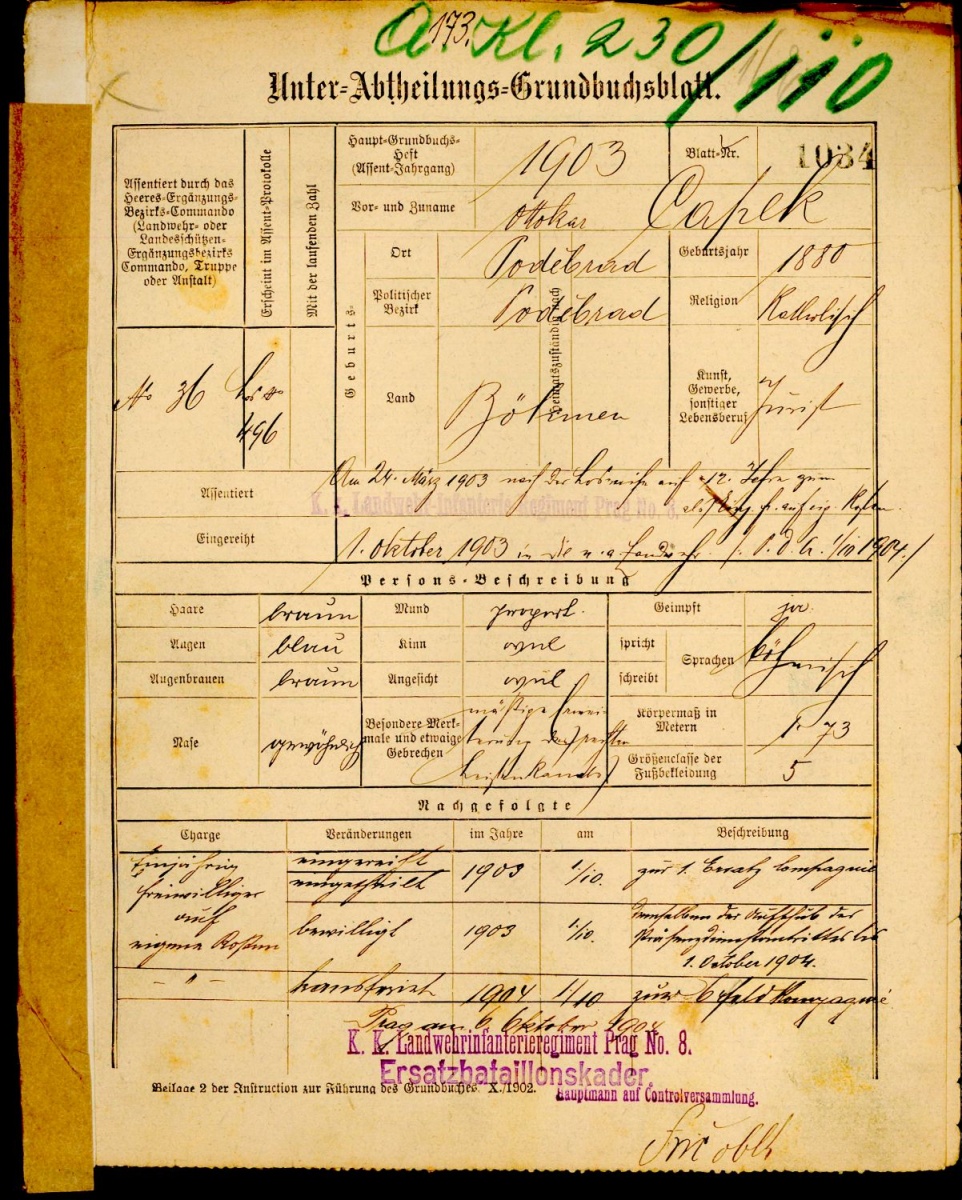 173.
A. Kl. 230/110
Unter-Abtheilungs-Grundbuchsblatt.
Assentiert durch das
Heeres-Ergänzungs-
Bezirks-Commando
(Landwehr- oder
Landesschützen-
Ergänzungsbezirks
Commando, Truppe
oder Anstalt)
Erscheint im Assent-Protokolle
Mit der laufenden Zahl
Haupt-Grundbuchs-
Heft
(Assent-Jahrgang)
1903
Blatt-Nr.
1034
Vor- und Zuname
Ottokar Čapek
Geburts-
Heimatszuständig nach
Ort
Poděbrad
Geburtsjahr
1880
Politischer
Bezirk
Poděbrad
Religion
Katholisch
Land
Böhmen
Kunst,
Gewerbe,
sonstiger
Lebensberuf
Jurist
No 36
Los No
496
Assentiert
Am 24. März 1903 nach der Losreihe auf 12 Jahre zum
K. k. Landwehr-Infanterie-Regiment Prag No. 8.
Eingereiht
1. Oktober 1903 in die Landwehr. 1/10 1904./
Persons-Beschreibung
Haare
braun
Mund
proport.
Geimpft
ja
Augen
blau
Kinn
oval
spricht
schreibt
Sprachen
böhmisch
Augenbrauen
braun
Angesicht
oval
Nase
gewöhnlich
Besondere Merk-
male und etwaige
Gebrechen
mäßige Erwei-
terung des
Leistenkanals
Körpermaß in
Metern
1.73
Größenclasse der
Fußbekleidung
5
Nachgefolgte
Charge
Veränderungen
im Jahre
am
Beschreibung
Einjährig
freiwilliger
auf
eigene Kosten
eingereiht
eingetheilt
1903
1/10.
zur 1. Ersatz Compagnie
bewilligt
1903
1/10.
demselben der Aufschub des
Präsenzdienstantrittes bis
1. October 1904.
- " -
transferirt
1904
1/10
zur 6 Feldkompagnie
Prag am 6. Oktober 1904
K. K. Landwehrinfanterieregiment Prag No. 8.
Ersatzbataillonskader.
Beilage 2 der Instruction zur Führung des Grundbuches X./1902.
Hauptmann auf Controlversammlung.